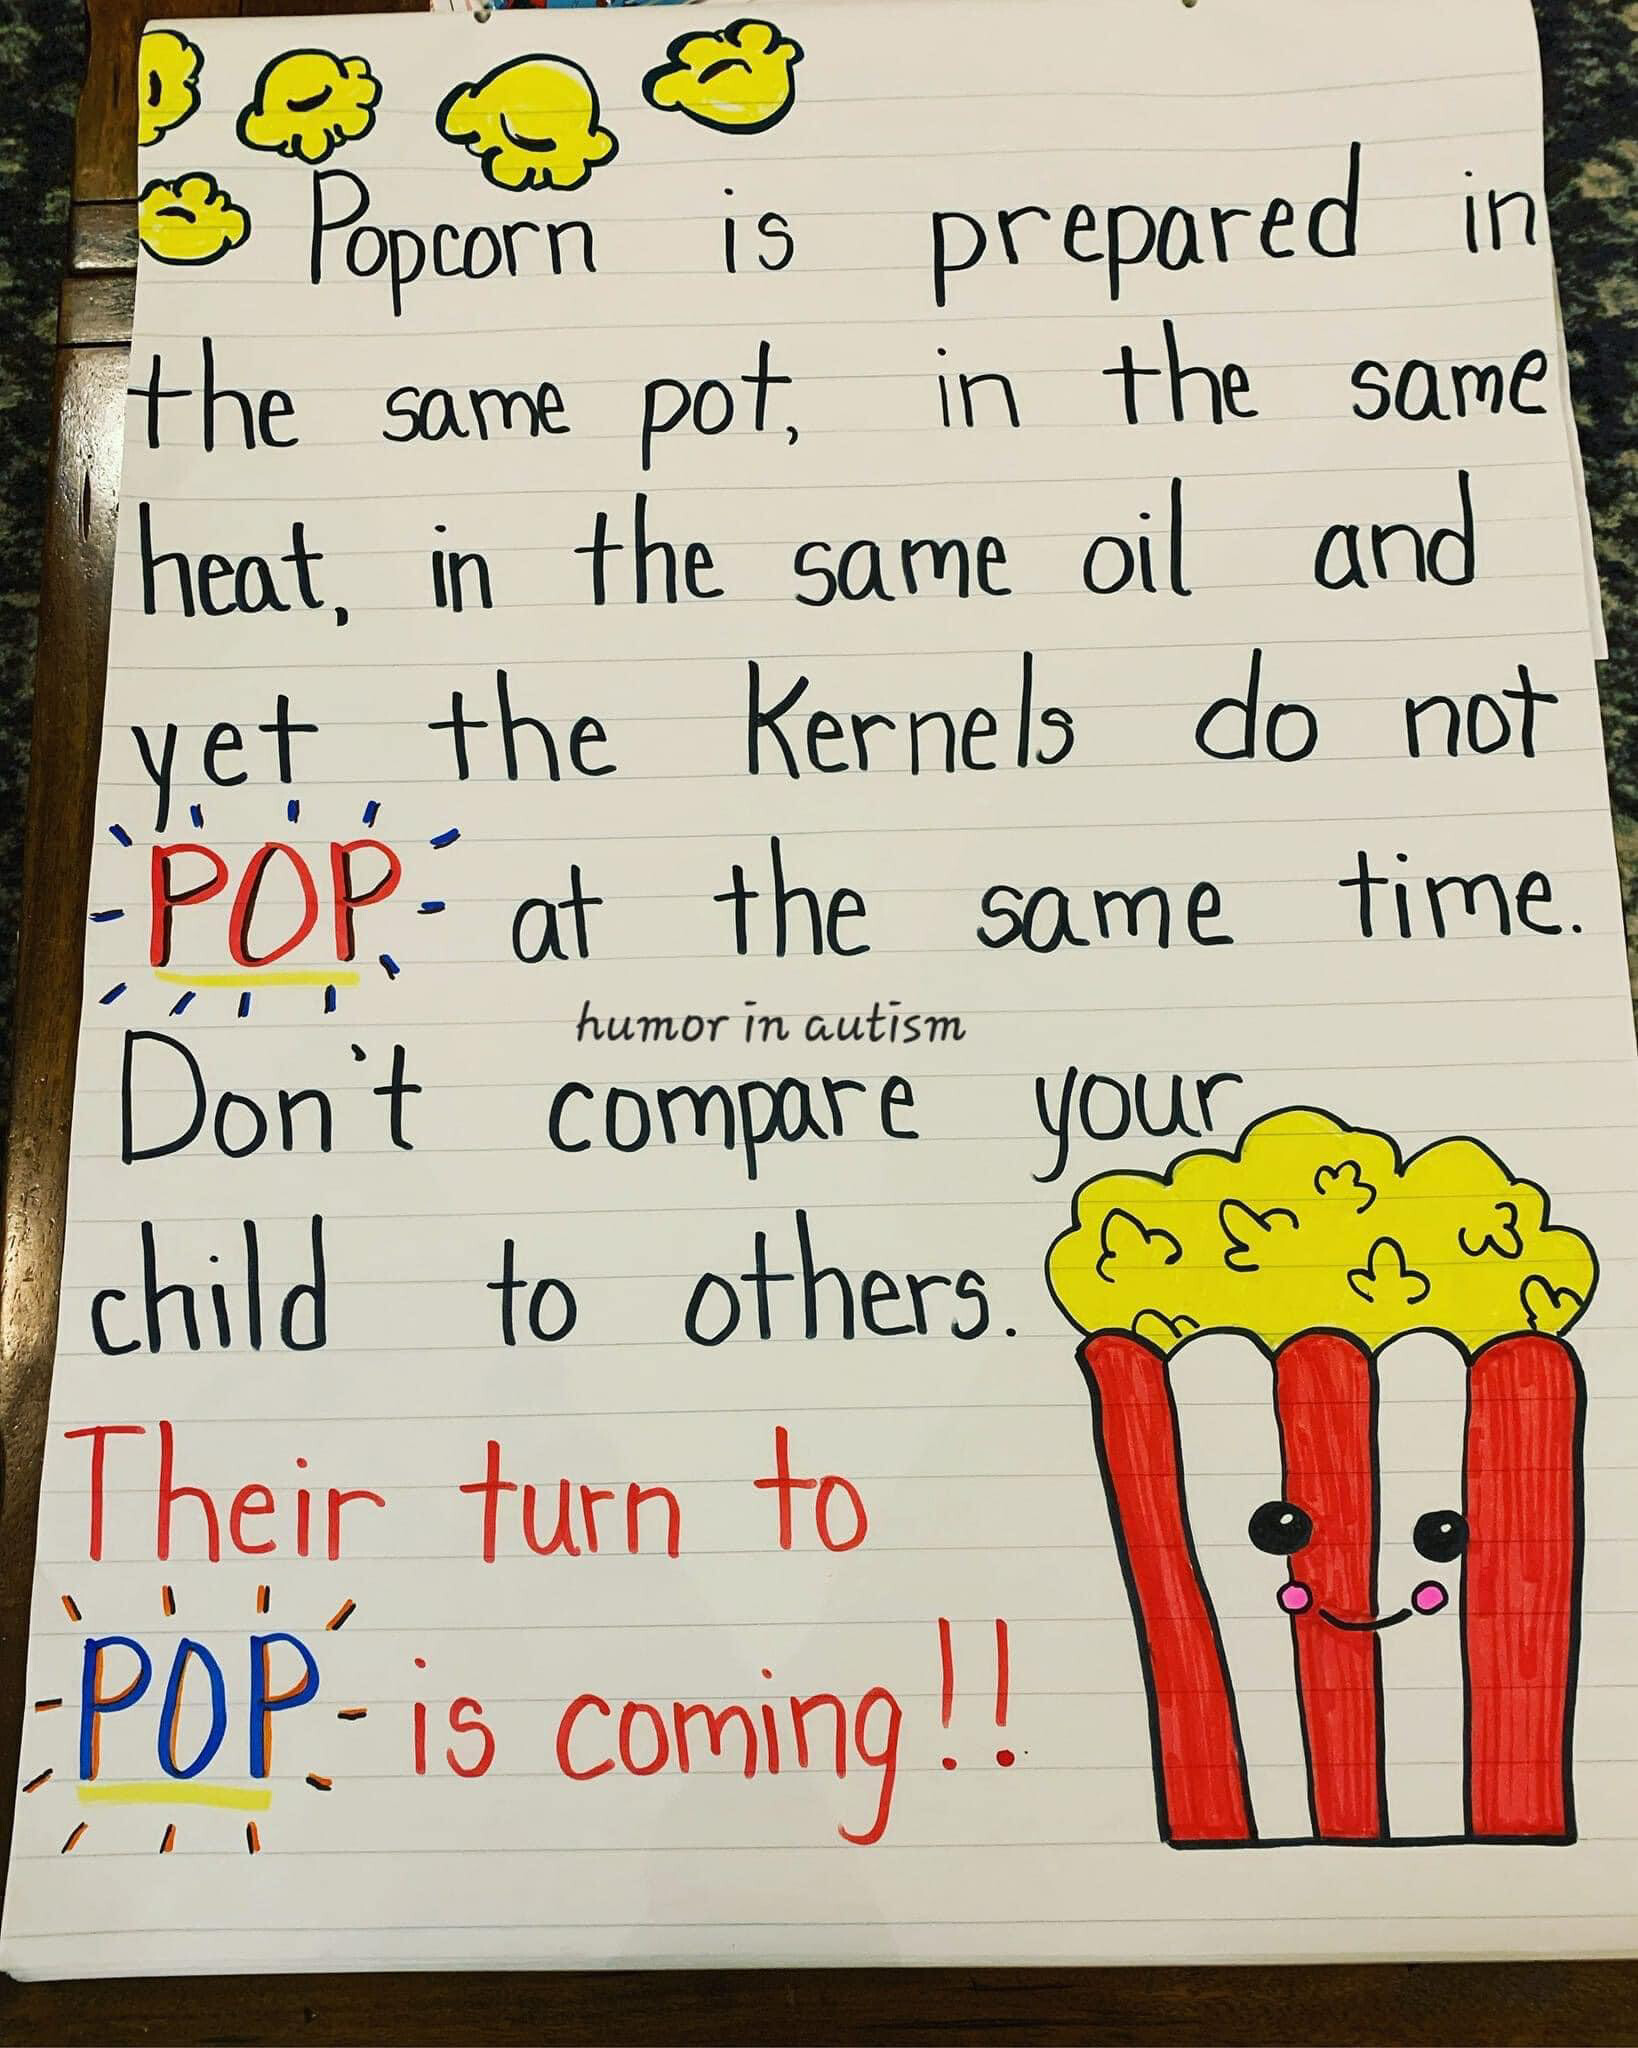 Popcorn is prepared in
the same pot, in the same
heat, in the same oil and
yet the Kernels do not
POP at the same time.
humor in autism
Don't compare your
child to others.
Their turn to
POP is coming!!